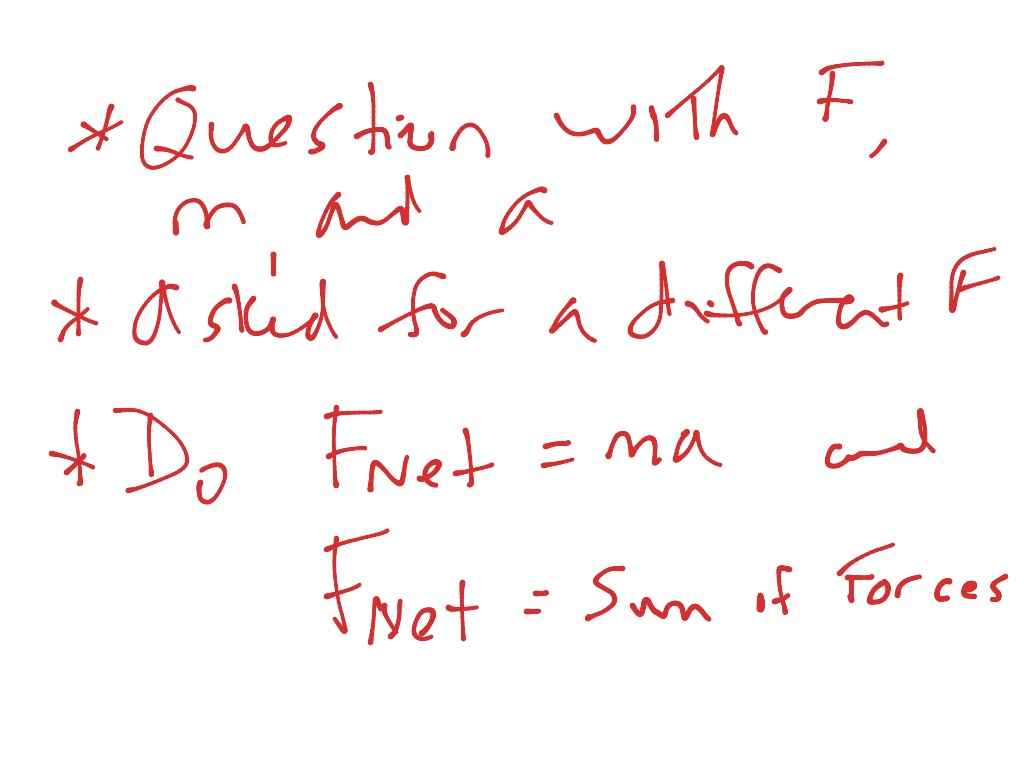 * Question with F,
m and a
* Asked for a different F
* Do FNet = ma and
FNet = Sum of Forces